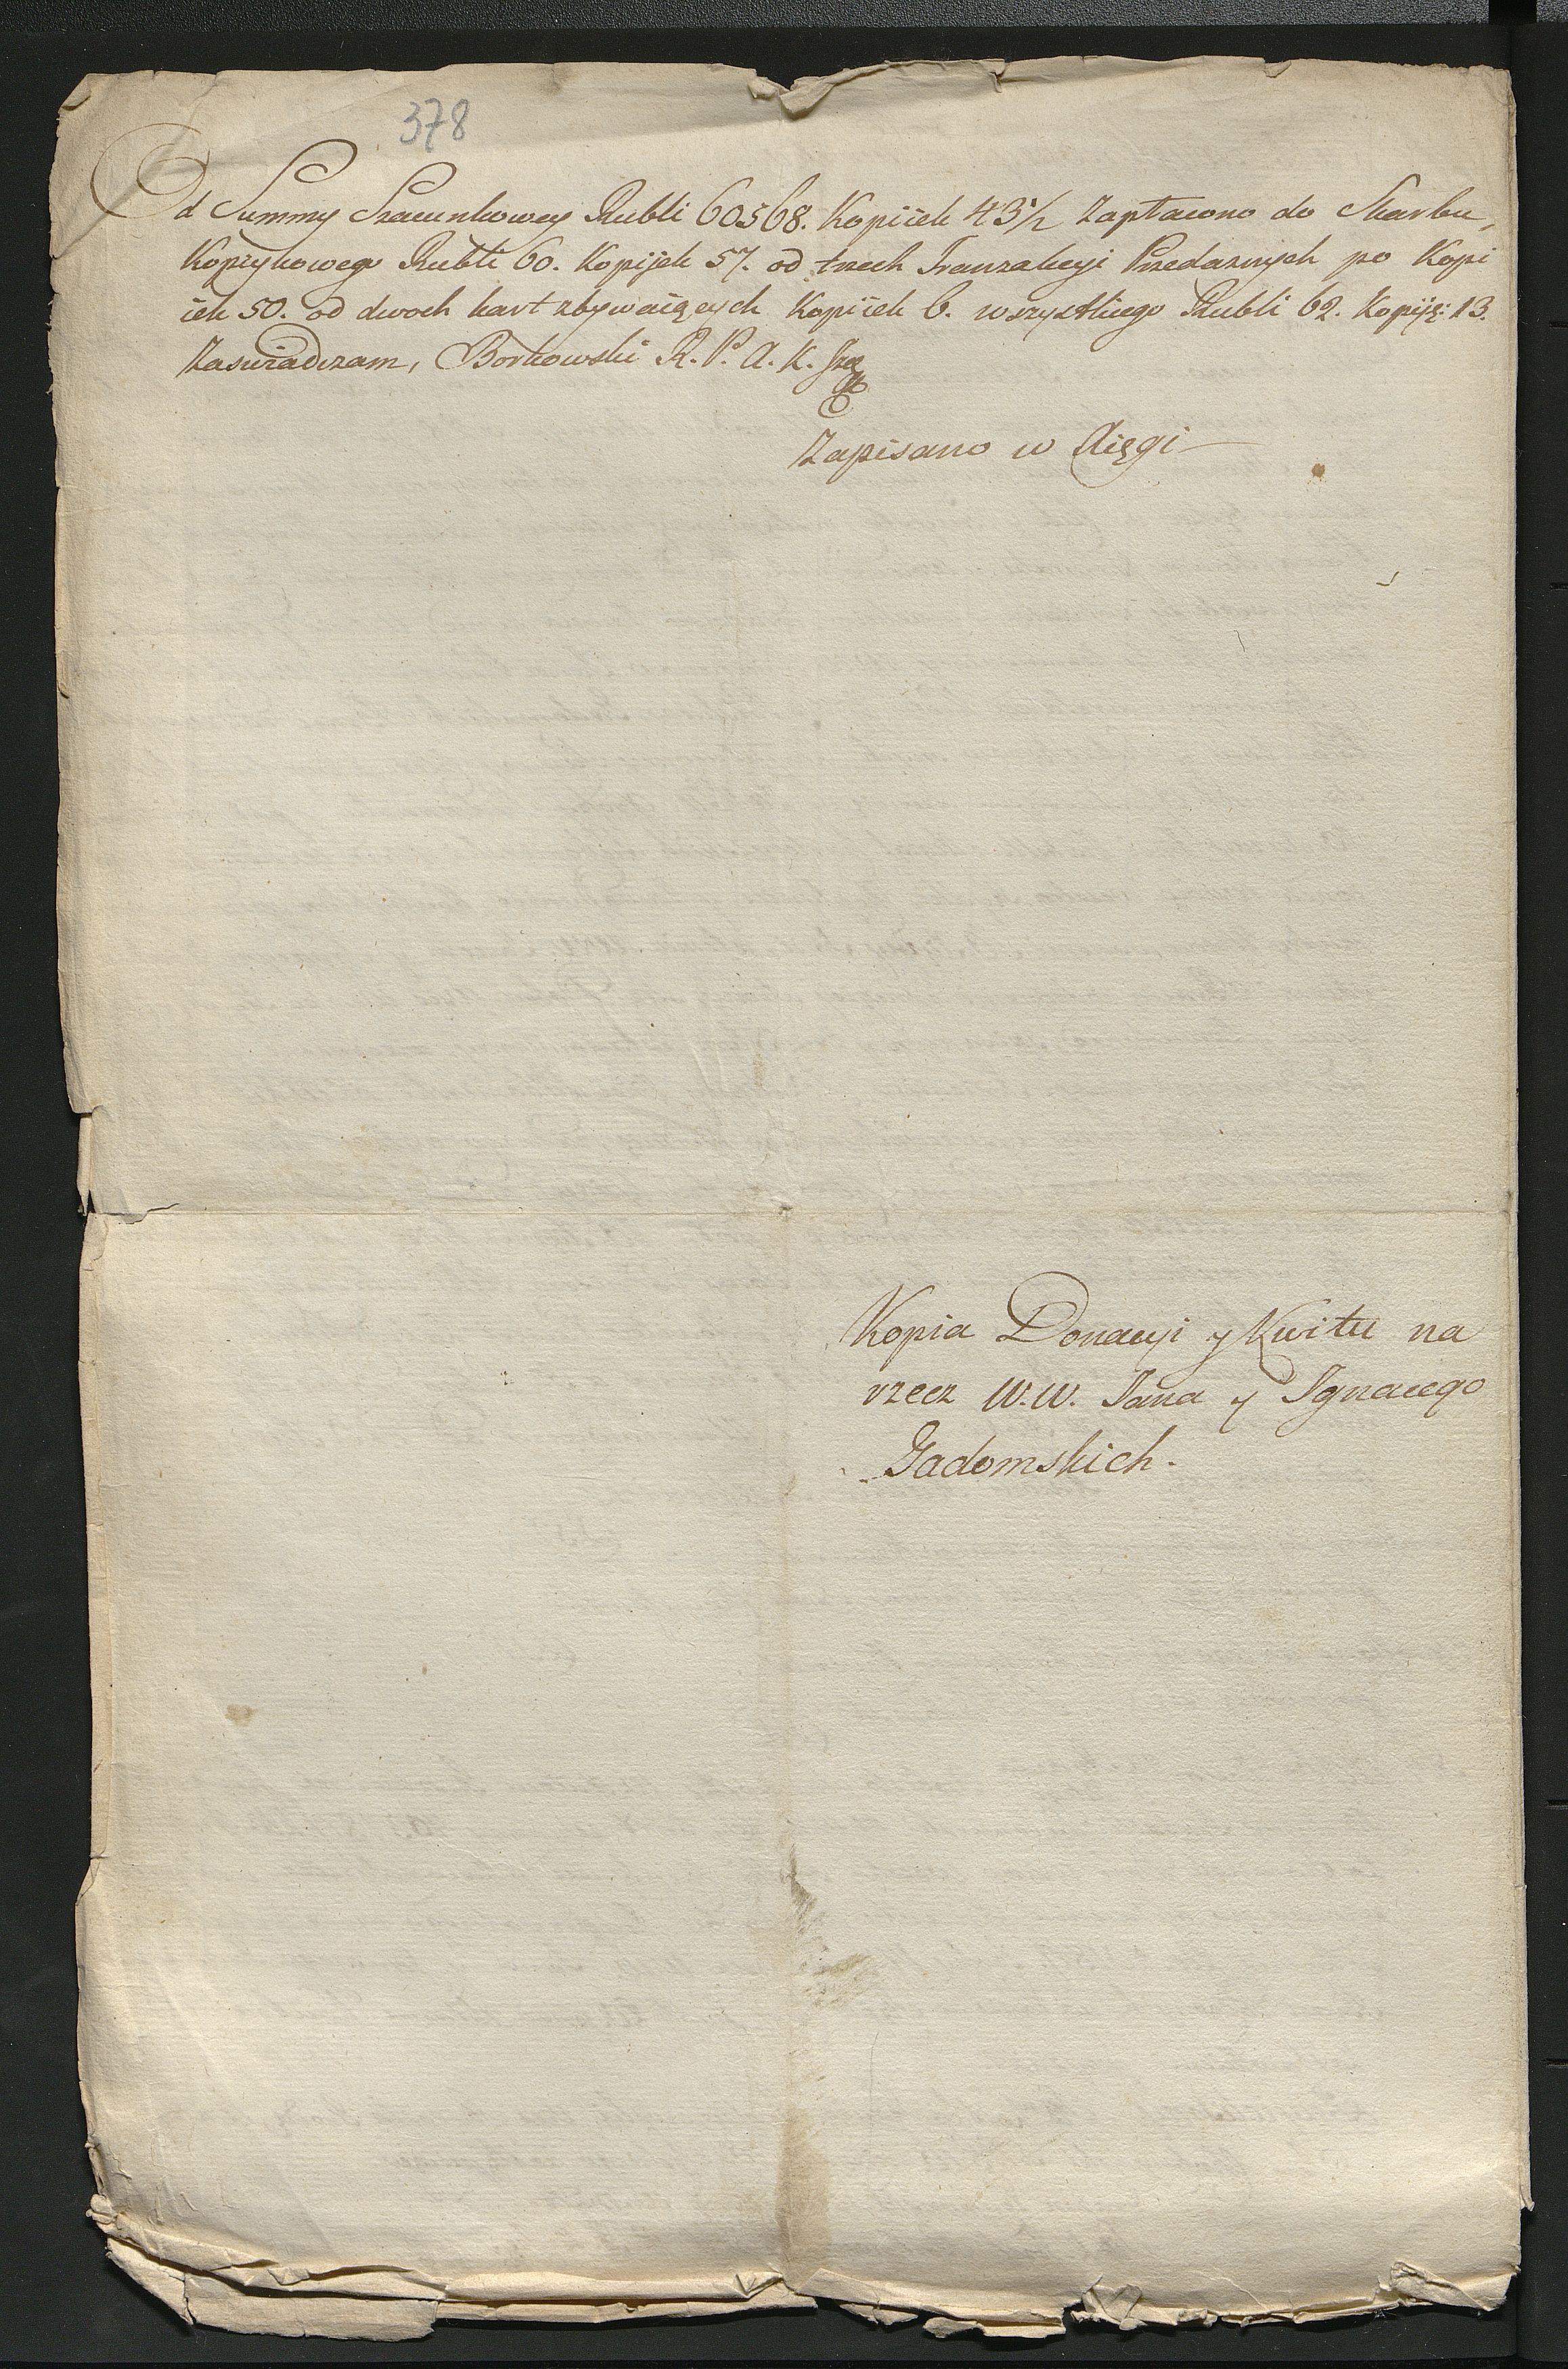 378
Od Summy Szacunkowey Rubli 60568. Kopiiek 43½ Zapłacono do Skarbu,
Kopzykowego Rubli 60. Kopijek 57. od trzech Tranzakcyi Przedaznych po Kopi
iek 50. od dwoch kart zbywaiących Kopiiek 6. wszystkiego Rubli 62. Kopiię: 13.
Zaswiadczam, Borkowski R. P. A. K.
Zapisano w Xięgi
Kopia Donacyi y Kwitu na
rzecz W.W. Jana y Ignacego
Gadomskich.